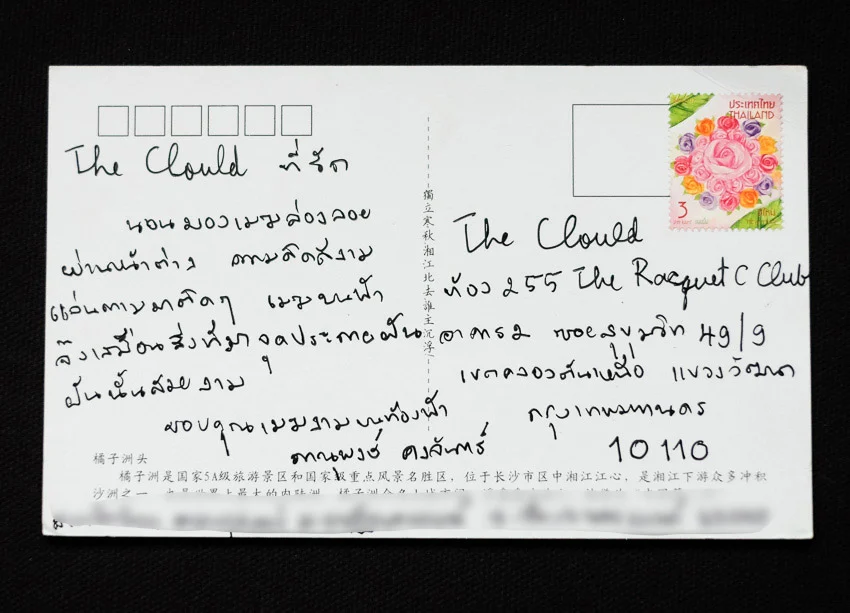 The Clould ที่รัก
นอนมองเมฆล่องลอย
ผ่านหน้าต่าง ความคิดดีงาม
แล่นตามมาติดๆ เมฆบนฟ้า
จึงเสมือนสิ่งที่มาจุดประกายฝัน
ฝันนั้นสวยงาม
ขอบคุณเมฆงามบนท้องฟ้า
ภาณุพงษ์ คงจันทร์
獨立寒秋湘江北去誰主沉浮
ประเทศไทย
THAILAND
3
The Clould
ห้อง 255 The Racquet C Club
อาคาร 2 ซอยสุขุมวิท 49/9
เขตคลองตันเหนือ แขวงวัฒนา
กรุงเทพมหานคร
10110
橘子洲头
橘子洲是国家5A级旅游景区和国家级重点风景名胜区，位于长沙市区中湘江江心，是湘江下游众多冲积
沙洲之一